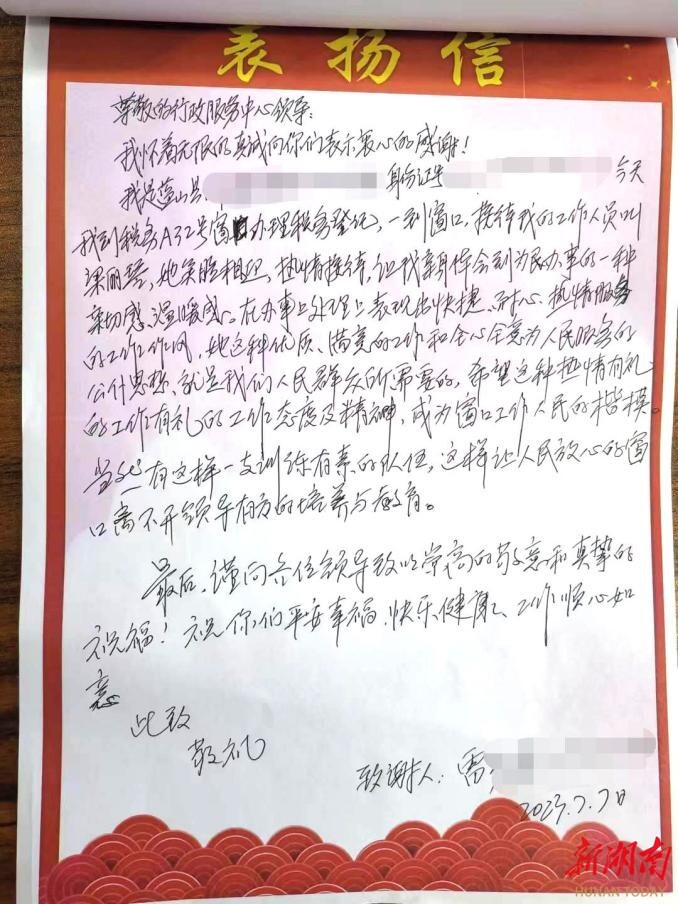 表扬信
尊敬的行政服务中心领导:
我怀着无限的真诚向你们表示衷心的感谢!
我是蓝山县 身份证号 今天
我到税务A32号窗口办理税务登记,一到窗口,接待我的工作人员叫
梁丽琴,她笑脸相迎,热情接待,让我亲身体会到为民办事的一种
亲切感、温暖感。在办事上处理上表现出快捷、耐心、热情服务
的工作作风,她这种优质、满意的工作和全心全意为人民服务的
公仆思想,就是我们人民群众所需要的,希望这种热情有礼
的工作有礼的工作态度及精神,成为窗口工作人民的楷模。
当然有这样一支训练有素的队伍,这样让人民放心的窗
口离不开领导有方的培养与教育。
最后,谨向各位领导致以崇高的敬意和真挚的
祝福!祝你们平安幸福、快乐健康、工作顺心如
意
此致
敬礼
致谢人:雷
2023.7.7日
新湖南
HUNAN TODAY